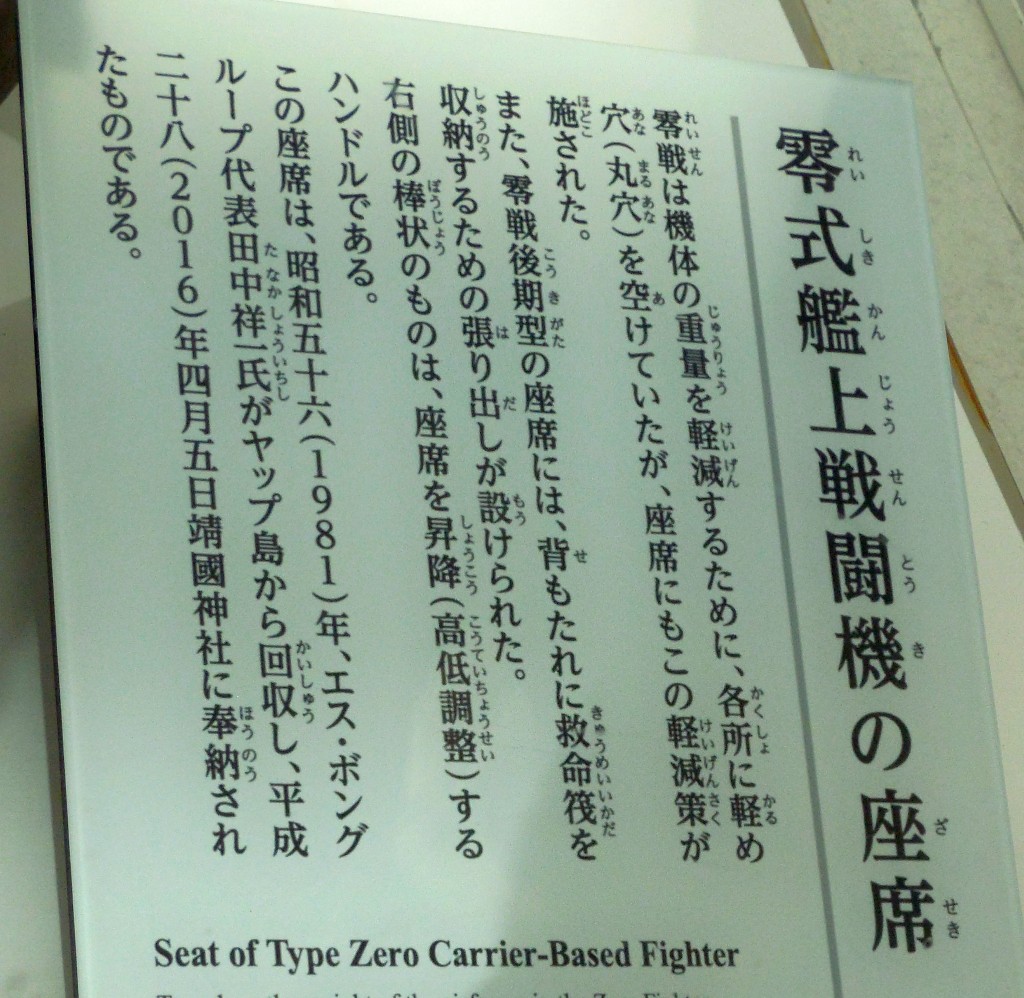 零式艦上戦闘機の座席
零戦は機体の重量を軽減するために、各所に軽め
穴（丸穴）を空けていたが、座席にもこの軽減策が
施された。
また、零戦後期型の座席には、背もたれに救命筏を
収納するための張り出しが設けられた。
右側の棒状のものは、座席を昇降（高低調整）する
ハンドルである。
この座席は、昭和五十六（1981）年、エス・ボング
ループ代表田中祥一氏がヤップ島から回収し、平成
二十八（2016）年四月五日靖國神社に奉納され
たものである。
Seat of Type Zero Carrier-Based Fighter